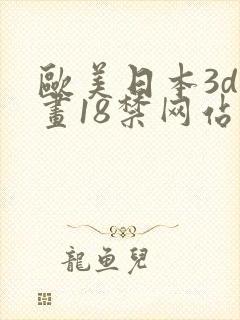 歐美日本3d
畫18禁网佔
龍鱼兒